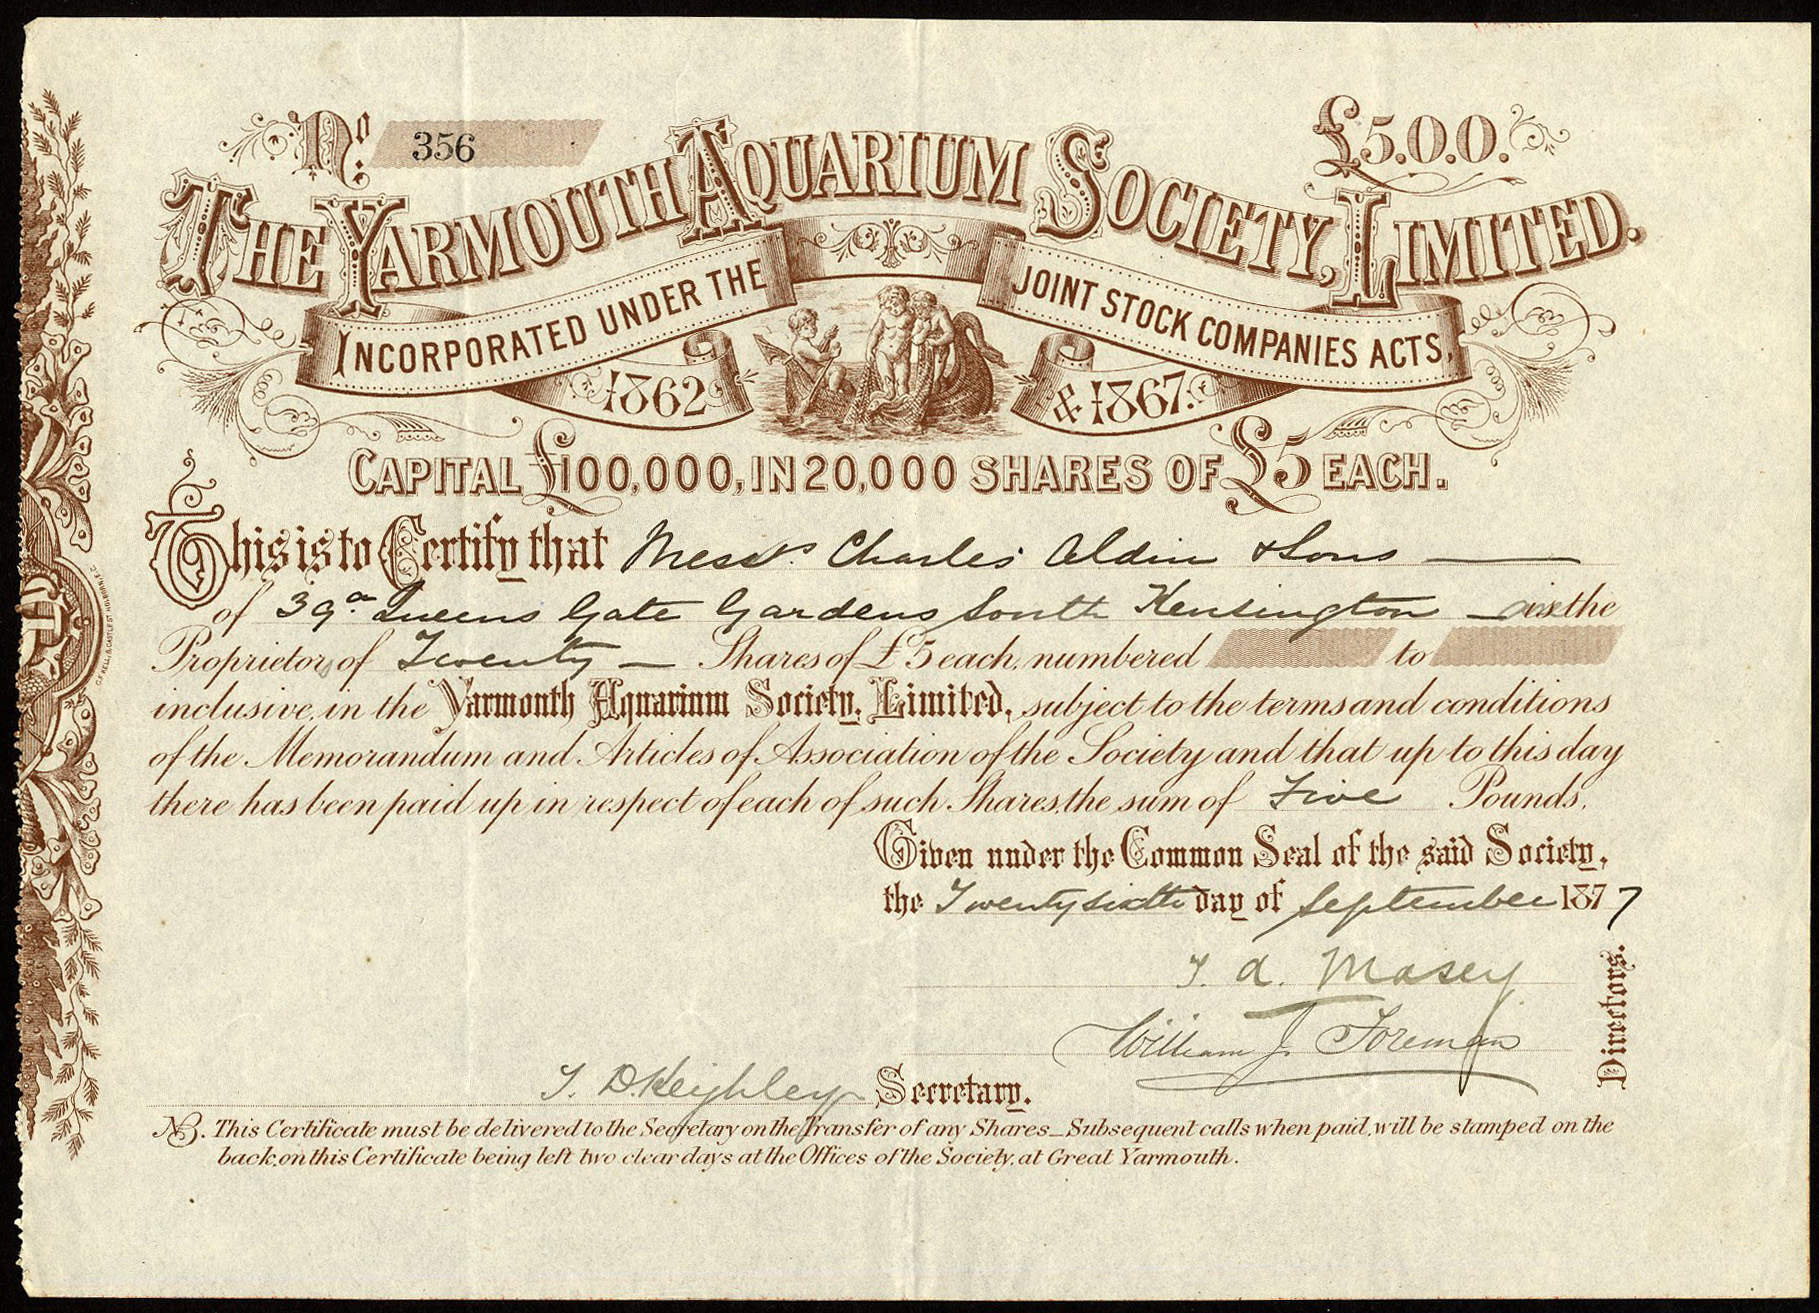 No. 356
£5.0.0.
THE YARMOUTH AQUARIUM SOCIETY, LIMITED.
INCORPORATED UNDER THE JOINT STOCK COMPANIES ACTS,
1862 & 1867.
CAPITAL £100,000, IN 20,000 SHARES OF £5 EACH.
This is to Certify that Messrs. Charles Aldin & Sons
of 39a Queens Gate Gardens South Kensington are the
Proprietors of Twenty Shares of £5 each, numbered to
inclusive, in the Yarmouth Aquarium Society, Limited, subject to the terms and conditions
of the Memorandum and Articles of Association of the Society and that up to this day
there has been paid up in respect of each of such Shares, the sum of Five Pounds.
Given under the Common Seal of the said Society,
the Twenty sixth day of September 1877
J. A. Masey
William J. Foreman
Directors.
J. D. Keighley Secretary.
NB. This Certificate must be delivered to the Secretary on the Transfer of any Shares_Subsequent calls when paid, will be stamped on the
back, on this Certificate being left two clear days at the Offices of the Society, at Great Yarmouth.